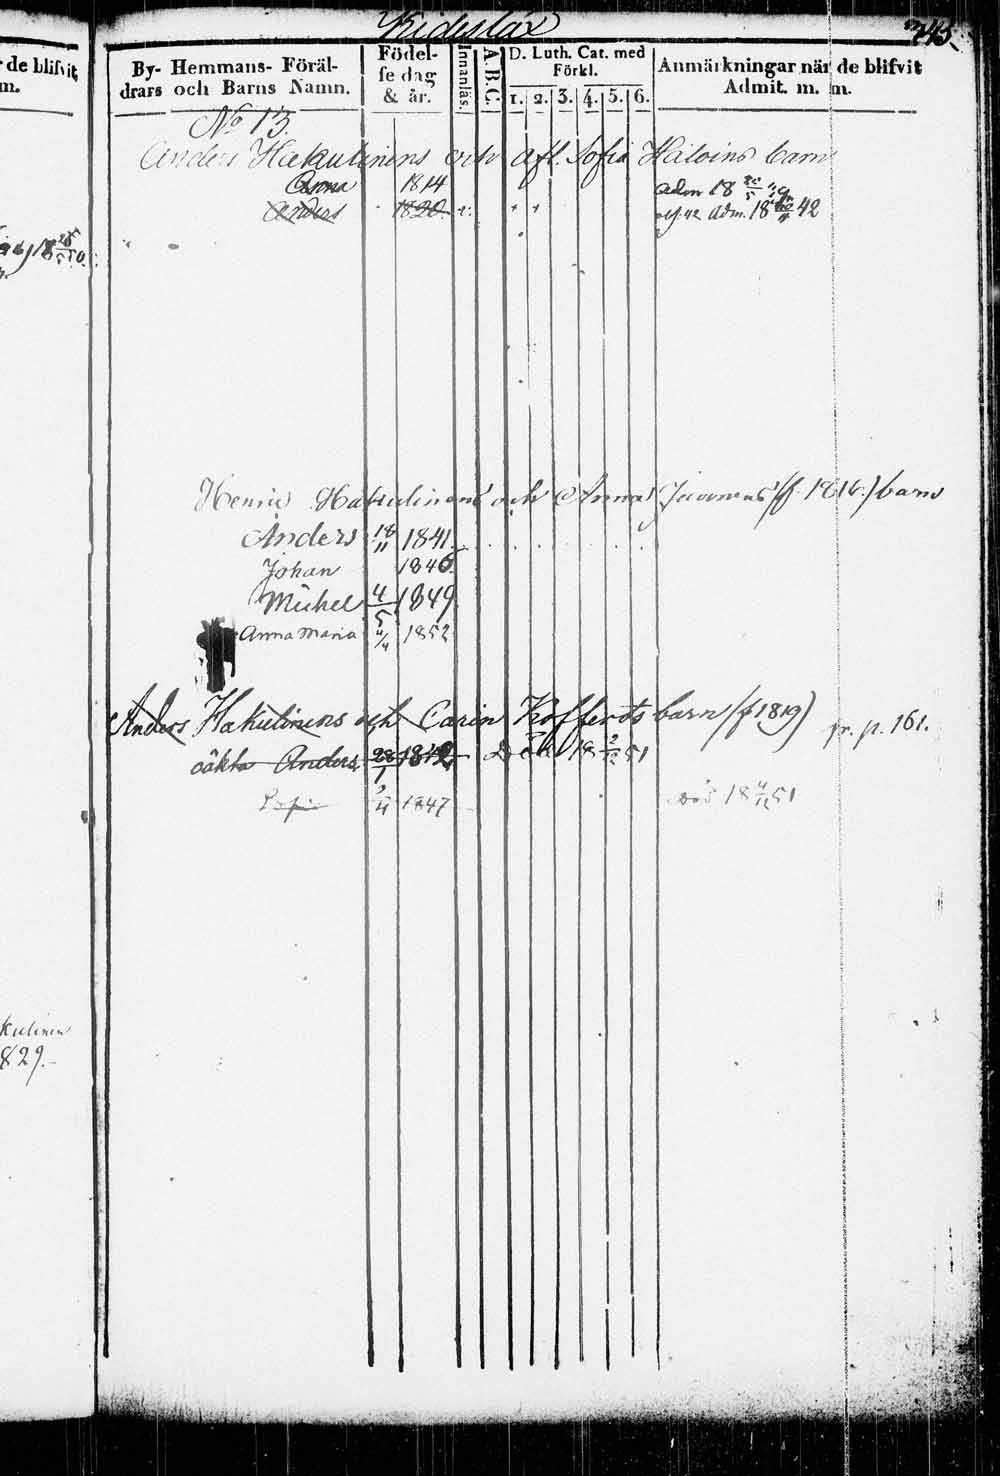 Kideslax 243.
de blifvit,
m.
By- Hemmans- Föräl-
drars och Barns Namn.
Födel-
se dag
& år.
Innanläs.
A.B.C.
D. Luth. Cat. med
Förkl.
1. 2. 3. 4. 5. 6.
Anmärkningar när de blifvit
Admit. m. m.
No 13.
Anders Hakulinens och afl. Sofia Haloins barn
Anna 1814 adm 18
Anders 1820 adm. 18 42
Henric Hakulinens och Anna Juvonens (f. 1816.) barn
Anders 18/11 1841.
Johan 1846
Michel 4/5 1849
Anna Maria 4/4 1852
Anders Hakulinens och Carin Kofferts barn (f 1819) fr. p. 161.
oäkta Anders 28/1 1842 Död 18 2/12 51
1847 Död 18 4/12 51
kulinen
829.-